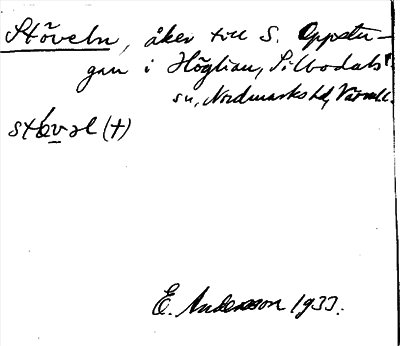 Stöveln, åker till S. Oppstu-
gan i Höglian, Silbodals
sn, Nordmarks hd, Värml.
stövəl (+)
E. Andersson 1933.